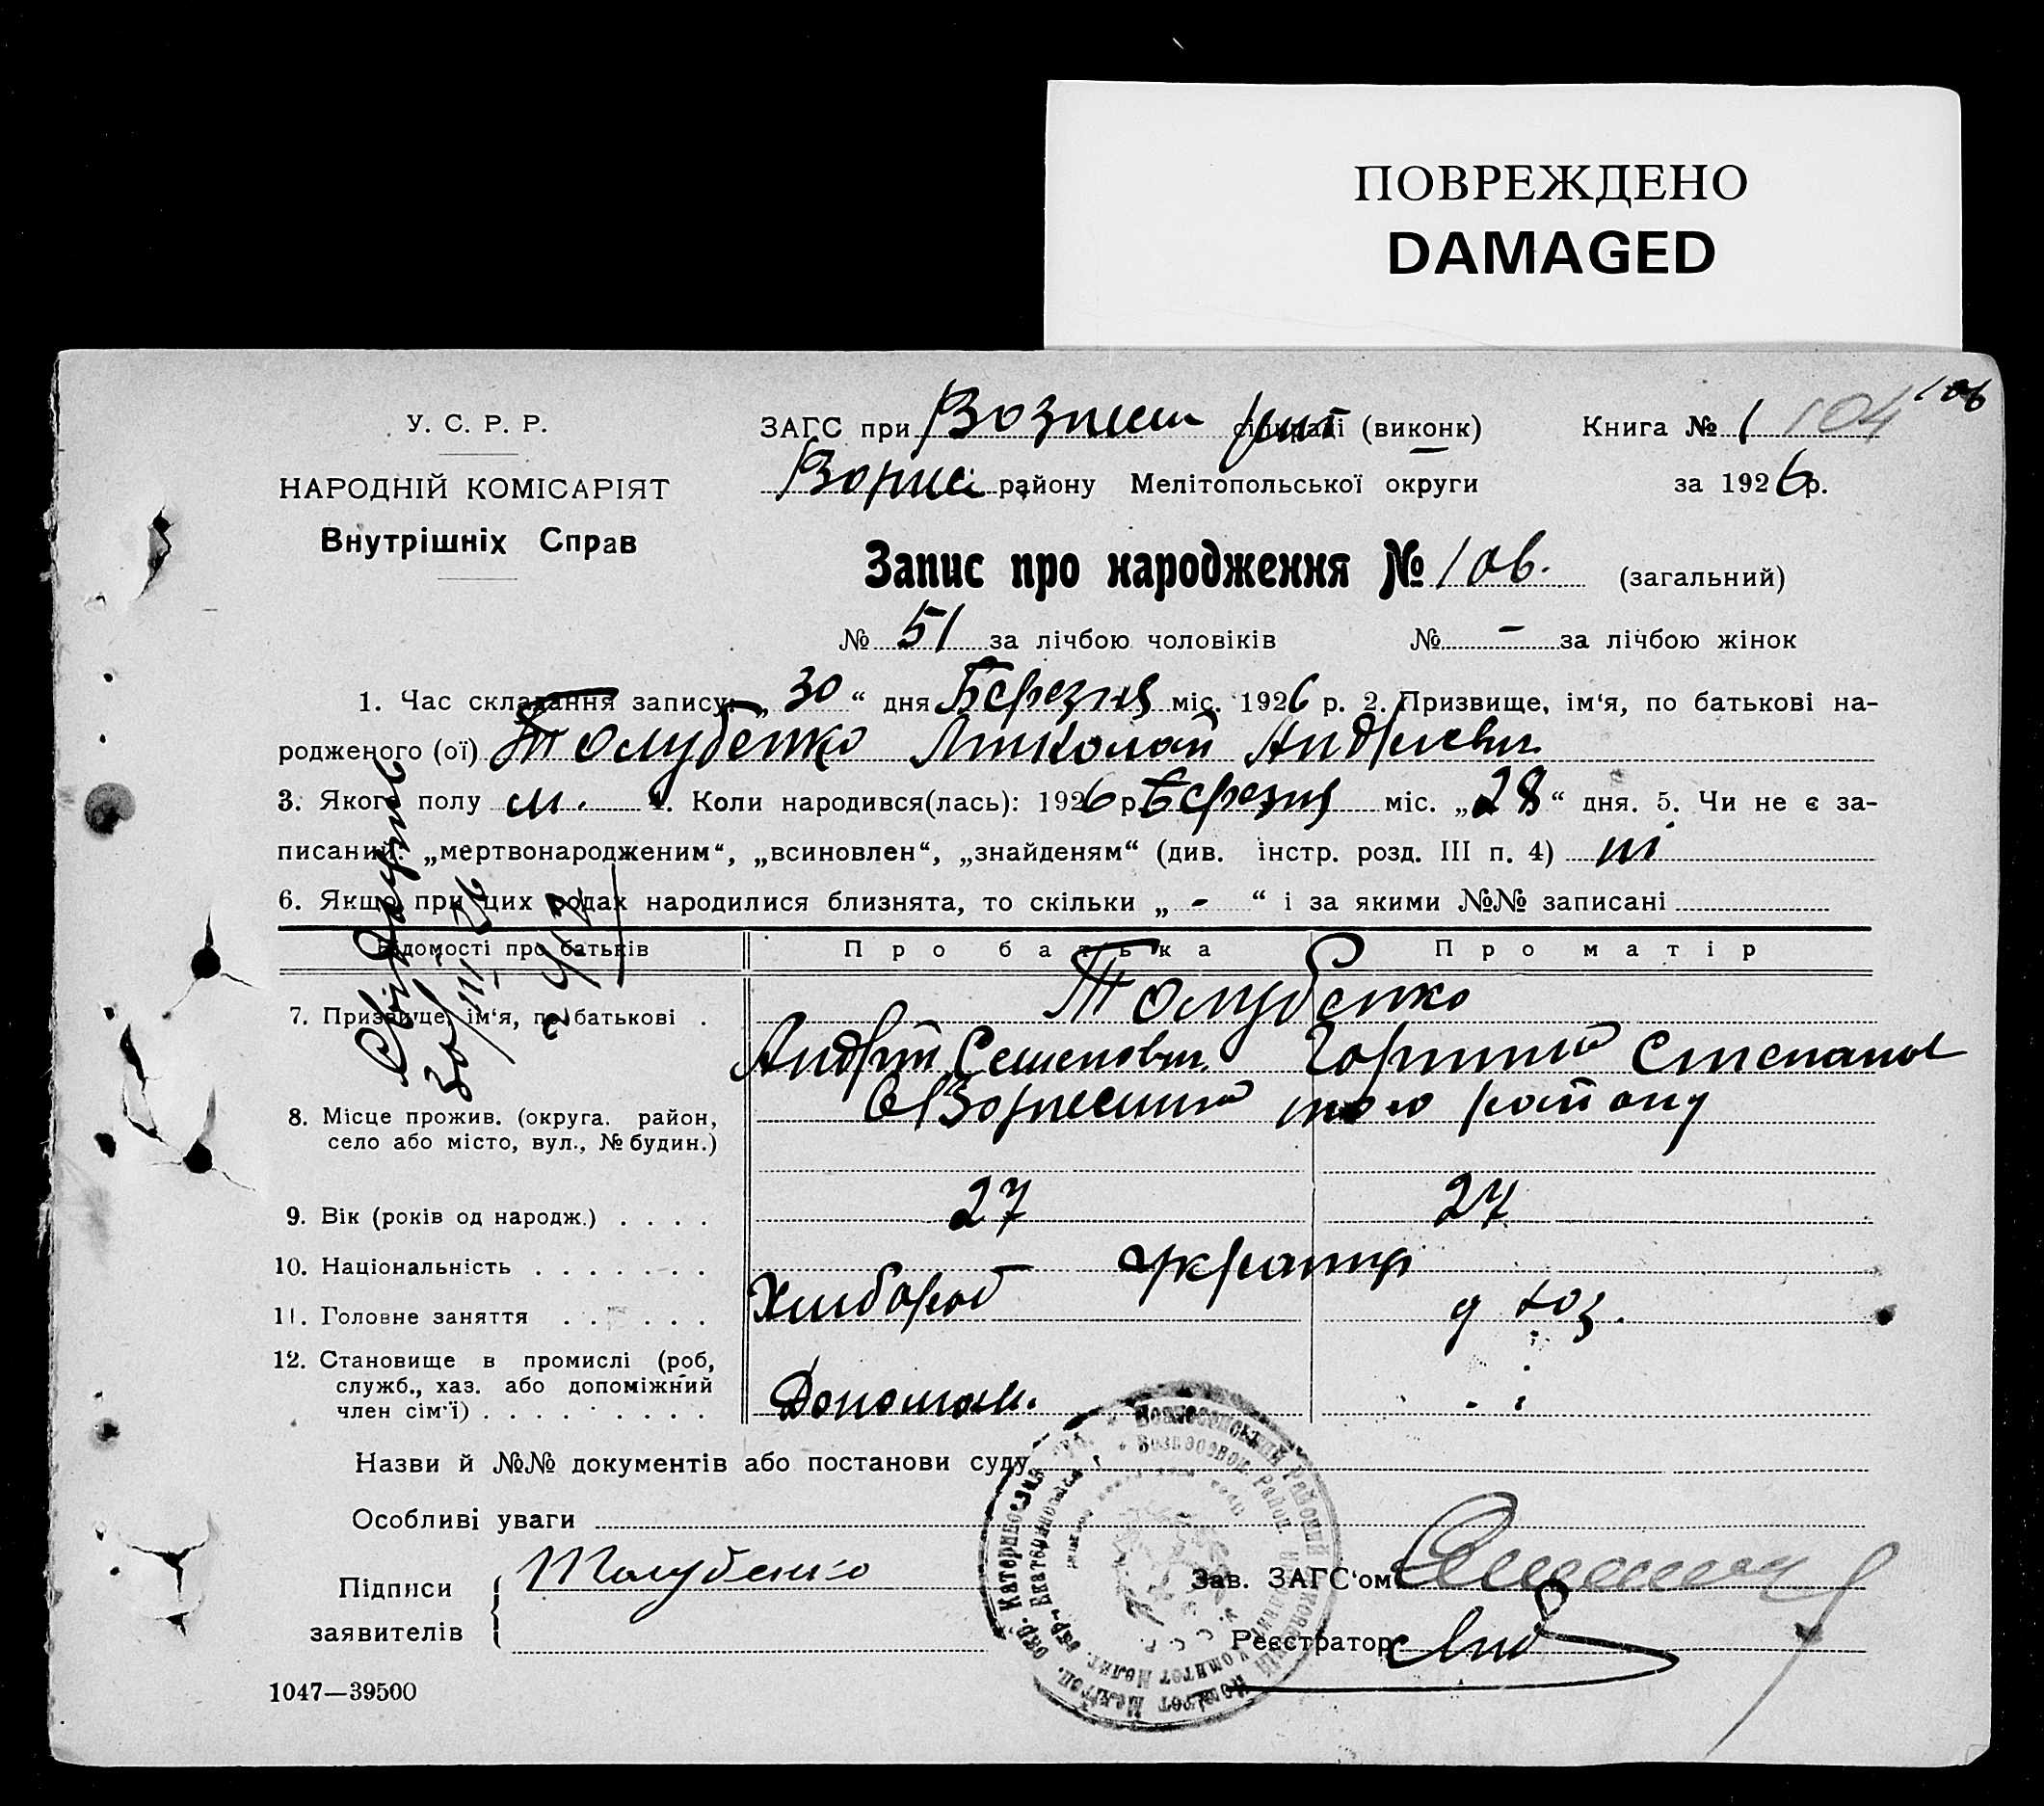 ПОВРЕЖДЕНО
DAMAGED
106
У. С. Р. Р.
НАРОДНІЙ КОМІСАРІЯТ
Внутрішніх Справ
ЗАГС при Вознесен (виконк)
району Мелітопольської округи
Книга № 1 104
за 1926 р.
Запис про народження № 106. (загальний)
№ 51 за лічбою чоловіків № - за лічбою жінок
1. Час складання запису: „ 30 “ дня Березня міс. 1926 р. 2. Призвище, ім‘я, по батькові на-
родженого (ої) Голубенко Миколай Андріевич
3. Якого полу м. 4. Коли народився(лась): 1926 р. Березня міс. „ 28 “ дня. 5. Чи не є за-
писаний: „мертвонародженим“, „всиновлен“, „знайденям“ (див. інстр. розд. III п. 4) ні
6. Якщо при цих родах народилися близнята, то скільки „ - “ і за якими №№ записані
Відомості про батьків Про батька Про матір
7. Призвище, ім‘я, по батькові . Голубенко
Андрій Семенович Степанов
8. Місце прожив. (округа. район,
село або місто, вул., № будин.)
того району
9. Вік (років од народж.) . . . . 27 27
10. Національність . . . . . . . україн
11. Головне заняття . . . . . . Хлібороб д хоз.
12. Становище в промислі (роб,
служб., хаз. або допоміжний
член сім‘ї) . . . . . . . . . Допомаж.
Назви й №№ документів або постанови суду
Особливі уваги
Підписи
заявителів
Голубенко
Зав. ЗАГС‘ом
Реєстратор
1047—39500